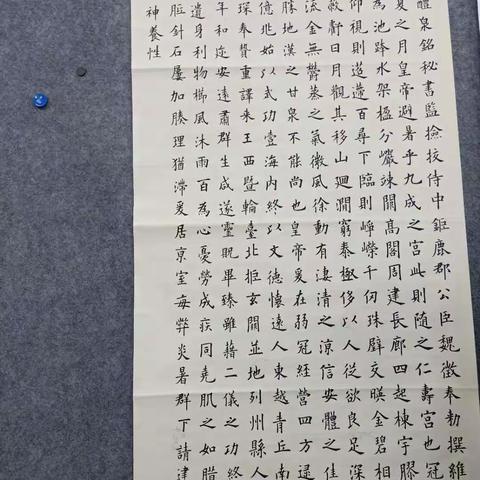 醴泉銘秘書監撿挍侍中鉅鹿郡公臣魏徵奉勑撰維
夏之月皇帝避暑乎九成之宮此則隨之仁壽宮也冠
為池跨水架楹分巖竦闕高閣周建長廊四起棟宇膠
仰視則迢遰百尋下臨則崢嶸千仞珠璧交暎金碧相
蔽虧日月觀其移山迴澗窮泰極侈以人從欲良足深
流金無鬱蒸之氣微風徐動有淒清之涼信安體之佳
勝地漢之甘泉不能尚也皇帝爰在弱冠經營四方逮
億兆始以武功壹海內終以文德懷遠人東越青丘南
琛奉贄重譯来王西暨輪臺北拒玄闕並地列州縣人
年和迩安遠肅群生咸遂靈貺畢臻雖藉二儀之功終
遺身利物櫛風沐雨百為心憂勞成疾同堯肌之如腊
胝針石屢加腠理猶滯爰居京室每弊炎暑群下請建
神養性